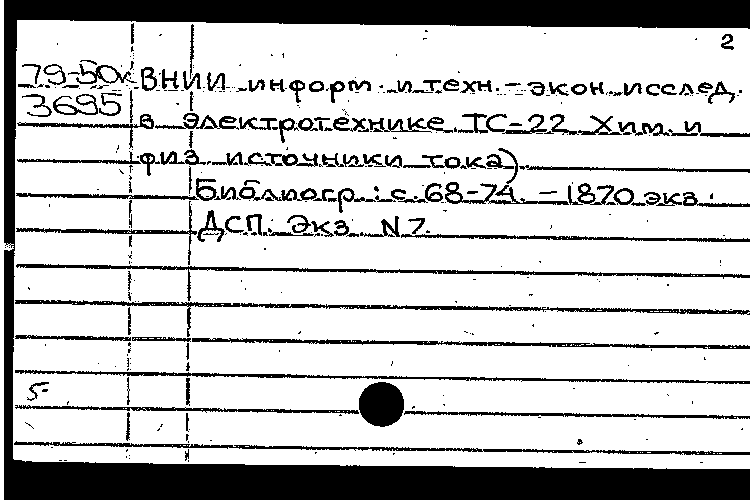 2
79-50к
3695
ВНИИ информ. и техн.-экон. исслед.
в электротехнике. ТС-22 Хим. и
физ источники тока)
Библиогр.: с. 68-74. - 1870 экз.
ДСП. Экз. N7.
5-